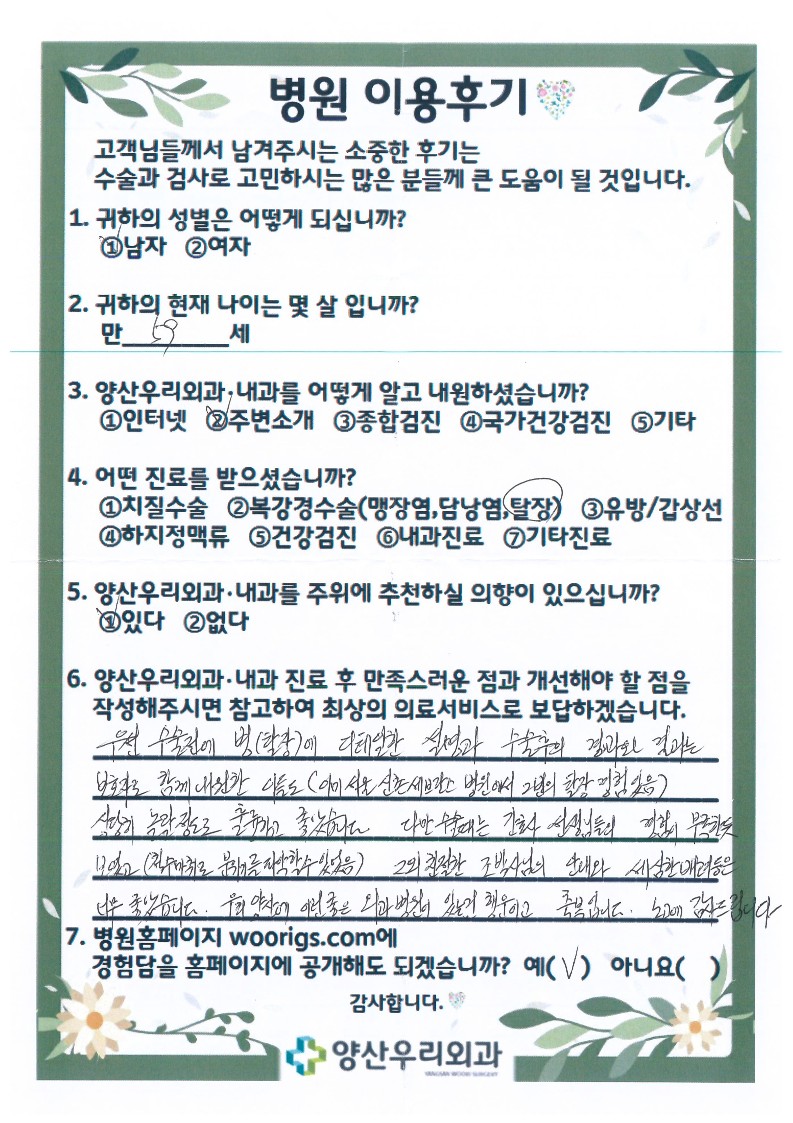 병원 이용후기
고객님들께서 남겨주시는 소중한 후기는
수술과 검사로 고민하시는 많은 분들께 큰 도움이 될 것입니다.
1. 귀하의 성별은 어떻게 되십니까?
①남자 ②여자
2. 귀하의 현재 나이는 몇 살 입니까?
만 세
3. 양산우리외과·내과를 어떻게 알고 내원하셨습니까?
①인터넷 ②주변소개 ③종합검진 ④국가건강검진 ⑤기타
4. 어떤 진료를 받으셨습니까?
①치질수술 ②복강경수술(맹장염,담낭염,탈장) ③유방/갑상선
④하지정맥류 ⑤건강검진 ⑥내과진료 ⑦기타진료
5. 양산우리외과·내과를 주위에 추천하실 의향이 있으십니까?
①있다 ②없다
6. 양산우리외과·내과 진료 후 만족스러운 점과 개선해야 할 점을
작성해주시면 참고하여 최상의 의료서비스로 보답하겠습니다.
우선 수술전에 병(탈장)에 디테일한 설명과 수술후의 경과와 결과는
보호자로 함께 내원한 이들도 (이미 서울 신촌세브란스 병원에서 2번의 탈장 경험있음)
상당히 놀랄정도로 훌륭하고 좋았습니다. 다만 수술때는 간호사 선생님들의 경험이 부족한듯
보였고 (척수마취로 분위기를 파악할수 있었음) 그외 친절한 조박사님의 안내와 세심한 배려등은
너무 좋았습니다. 우리 양산에 이런 좋은 외과병원이 있는건 행운이고 축복입니다. 노고에 감사드립니다
7. 병원홈페이지 woorigs.com에
경험담을 홈페이지에 공개해도 되겠습니까? 예(√) 아니요( )
감사합니다.
양산우리외과